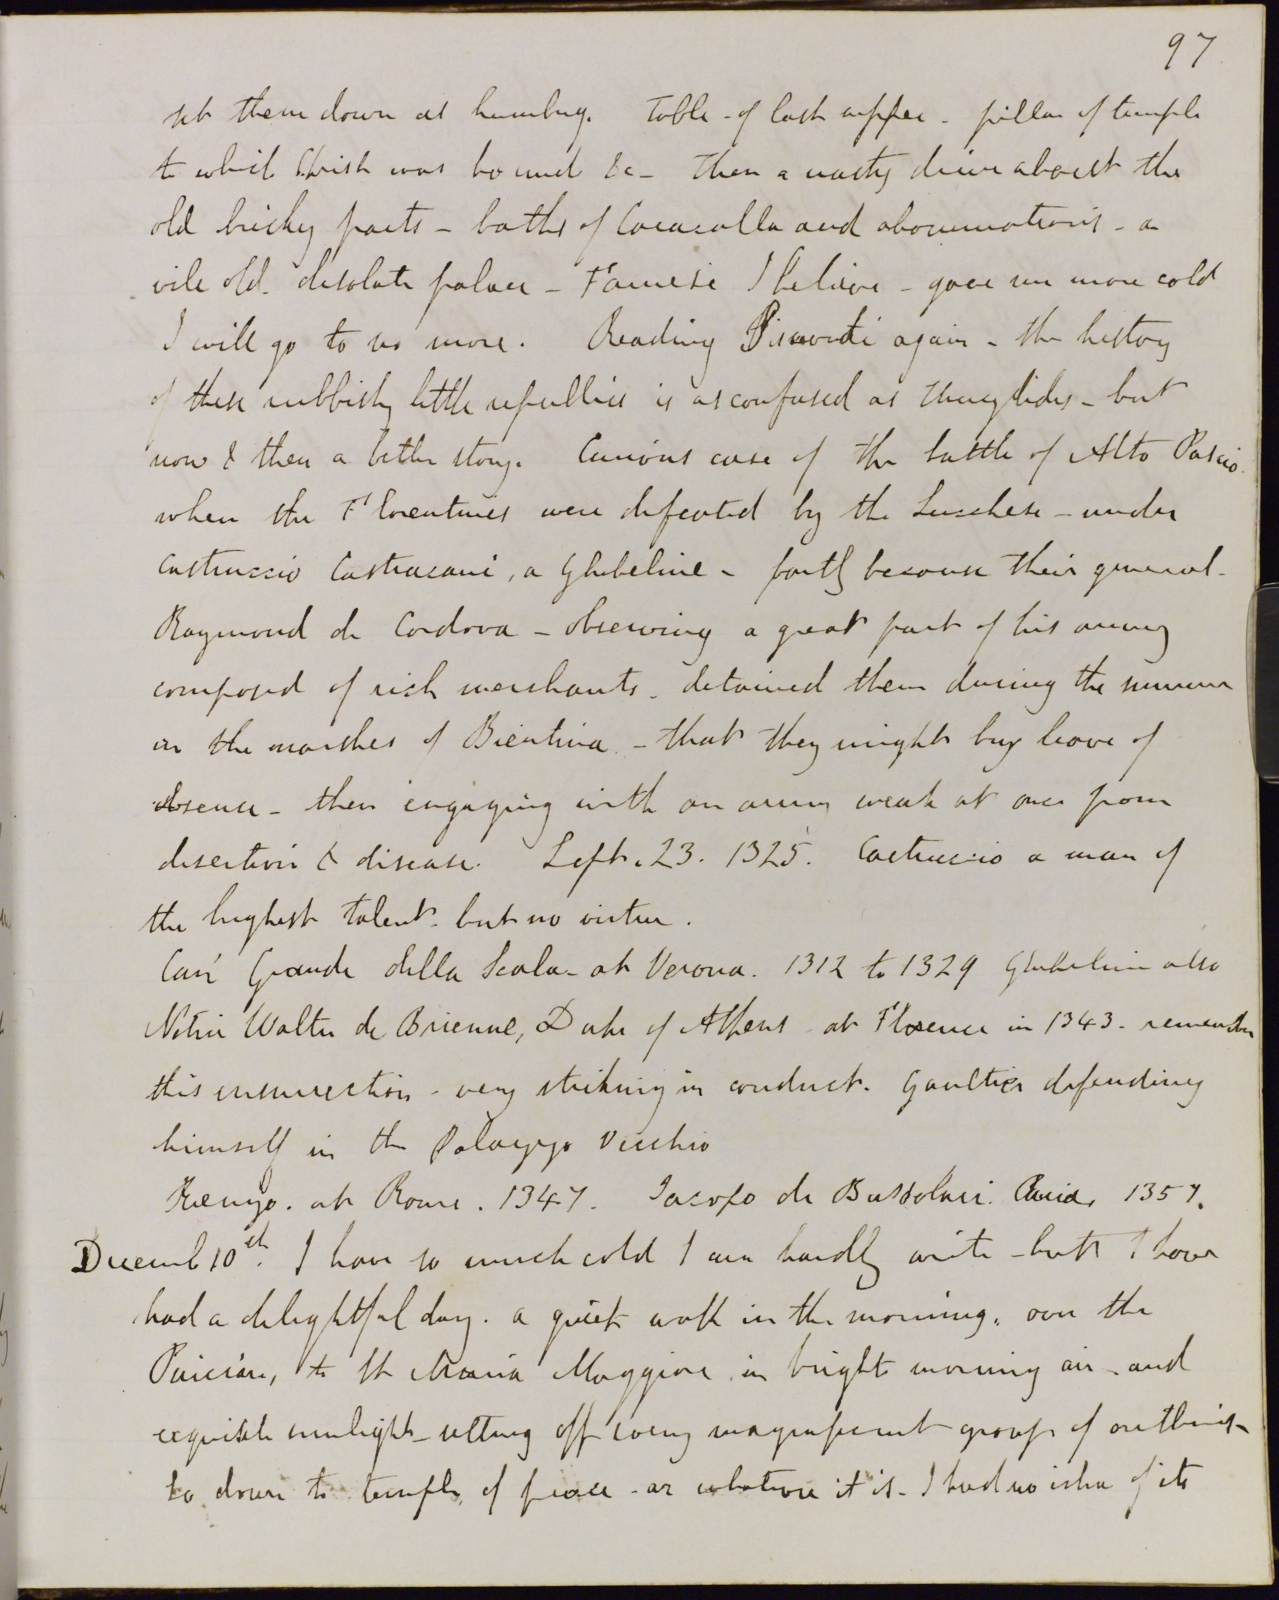 97
set them down as humbug. Table of last supper - pillar of temple
to which Christ was bound &c - Then a nasty drive about the
old bricky parts - baths of Caracalla and abominations - a
vile old desolate palace - Farnese I believe - gave me more cold
I will go to no more. Reading Sismondi again - the history
of these rubbishy little republics is as confused as Thucydides - but
now & then a better story. Curious case of the battle of Alto Pascio
when the Florentines were defeated by the Lucchese - under
Castruccio Castracani, a Ghibeline - partly because their general -
Raymond de Cordova - observing a great part of his army
composed of rich merchants - detained them during the summer
in the marshes of Bientina - that they might buy leave of
absence - then engaging with an army weak at once from
desertion & disease. Sept. 23. 1325. Castruccio a man of
the highest talent - but no virtue.
Can Grande della Scala - at Verona. 1312 to 1329 Ghibeline also
Notice Walter de Brienne, Duke of Athens - at Florence in 1343 - remember
this insurrection - very striking in conduct. Gaultier defending
himself in the Palazzo Vecchio
Rienzo. at Rome. 1347. Jacopo de Bussolari. Pavia. 1357.
Decemb 10th. I have so much cold I can hardly write - but I have
had a delightful day. a quiet walk in the morning. over the
Pincian, to St Maria Maggiore in bright morning air - and
exquisite sunlight - setting off every magnificent group of outlines -
so down to temple of peace - or whatever it is - I had no idea of its